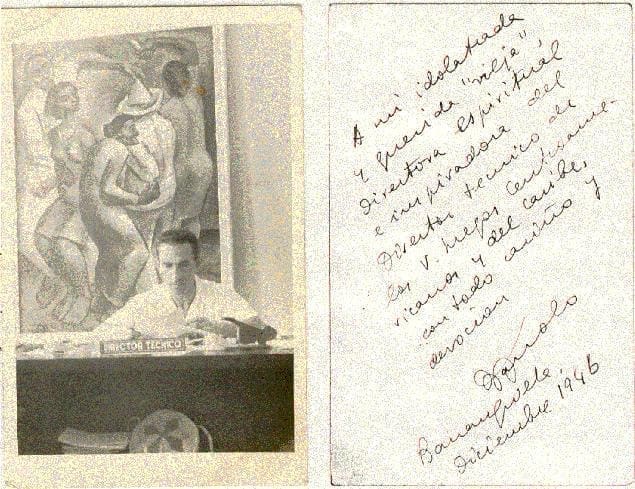 DIRECTOR TECNICO
A mi idolatrada
y querida "vieja"
Directora espiritual
e inspiradora del
Director tecnico de
los V. Juegos Centroame-
ricanos y del Caribe,
con todo cariño y
devoción
Barranquilla,
Diciembre 1946